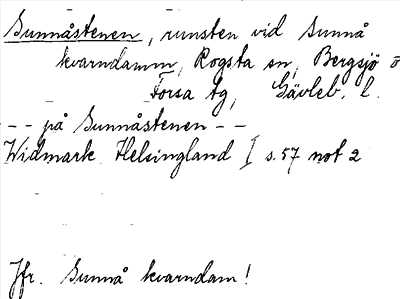 Sunnåstenen, runsten vid Sunnå
kvarndamm, Rogsta sn, Bergsjö o
Forsa tg, Gävleb. l.
- - på Sunnåstenen - -
Widmark Helsingland I s. 57 not 2
Jfr. Sunnå kvarndam!